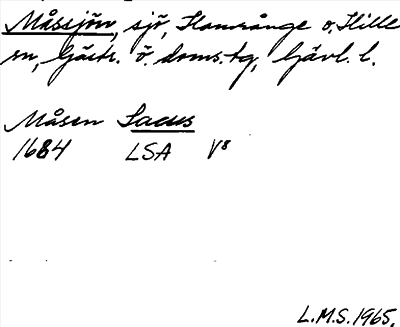 Måssjön, sjö, Hamrånge o. Hille
sn, Gästr. ö. doms.tg, Gävl. l.
Måsen Lacus
1684 LSA V⁸
L.M.S. 1965.